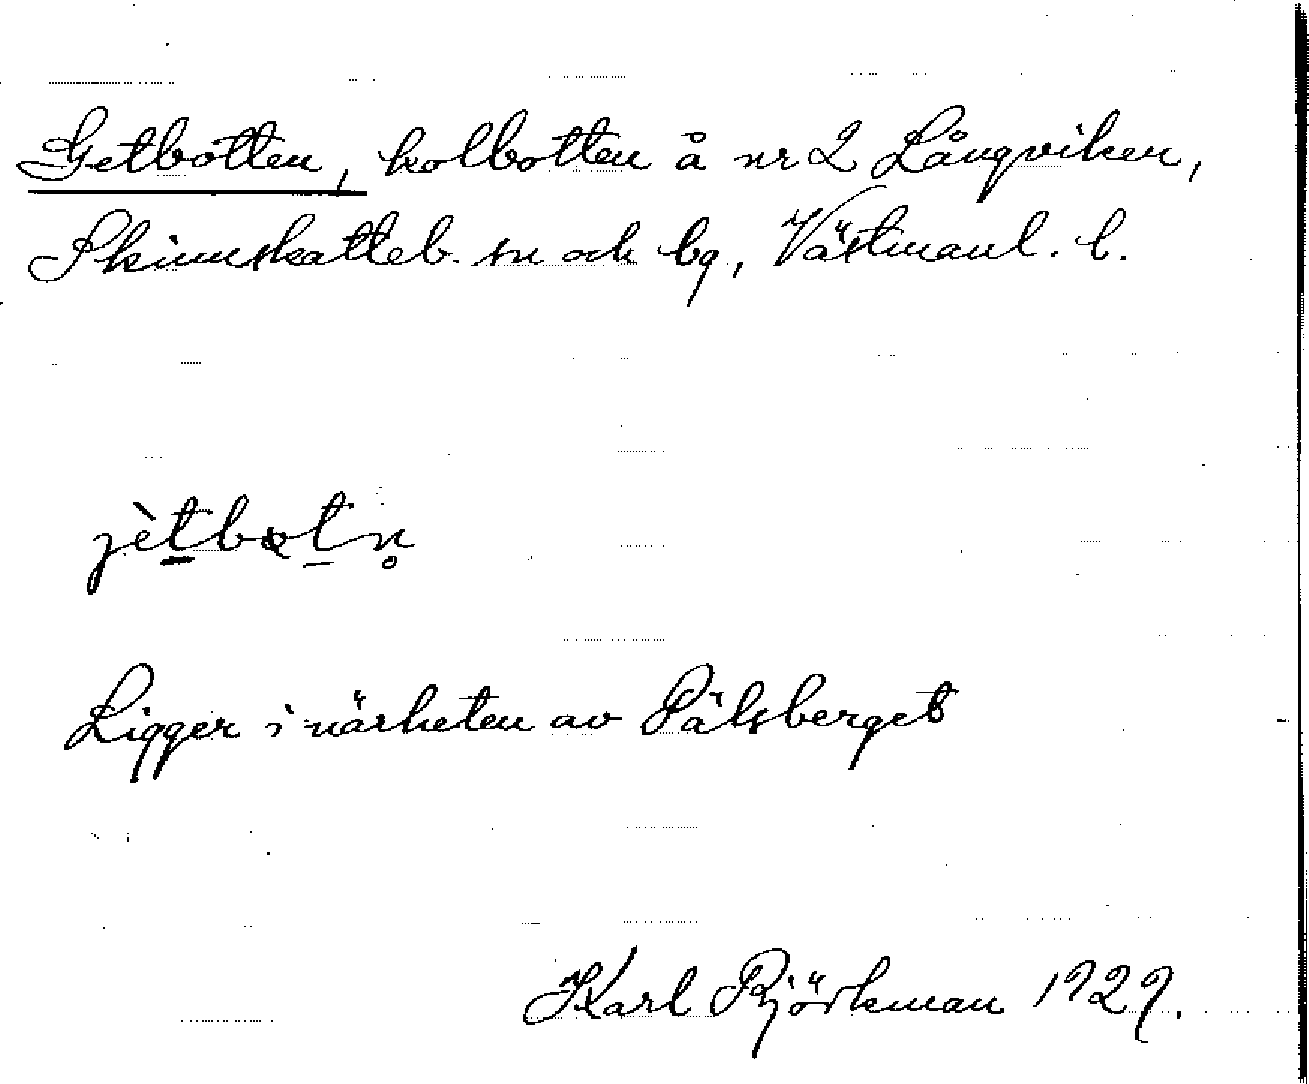 Getbotten, kolbotten å nr 2 Långviken,
Skinnskatteb. sn och bg, Västmanl. l.
jètbotn̥
Ligger i närheten av Pälsberget
Karl Björkman 1929.